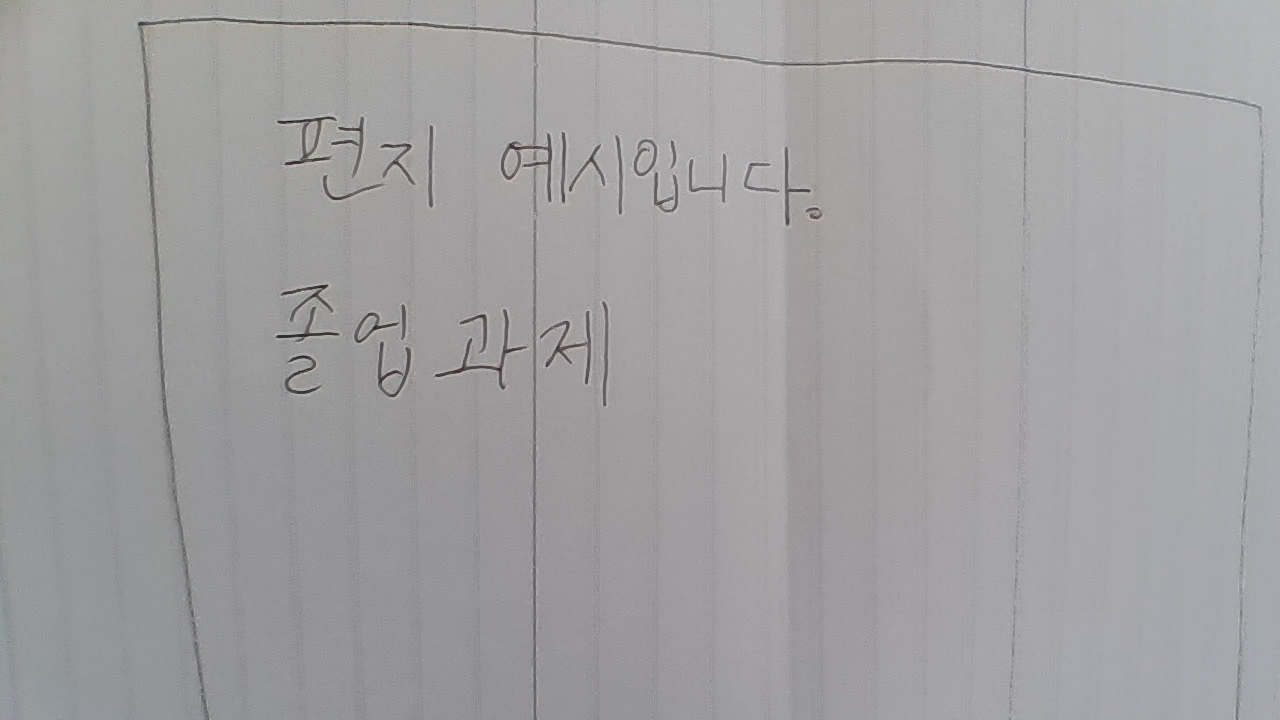 편지 예시입니다.
졸업과제